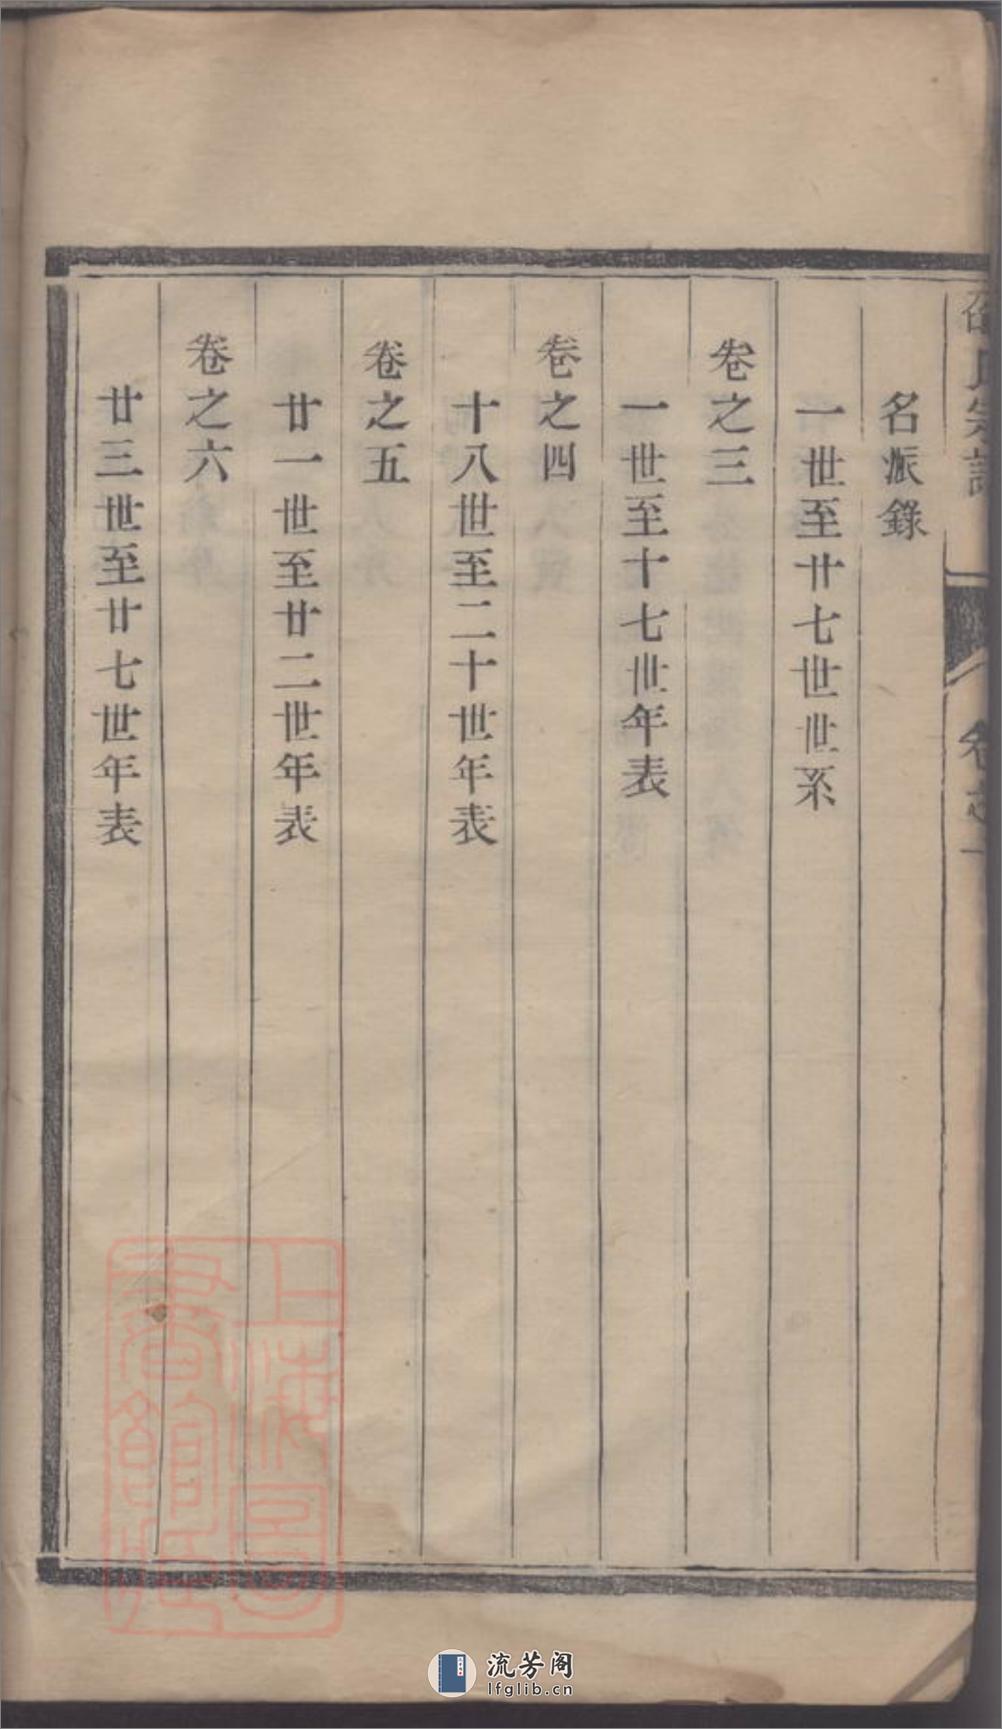 邵氏宗譜
卷之一
名派錄
一世至廿七世世系
卷之三
一世至十七世年表
卷之四
十八世至二十世年表
卷之五
廿一世至廿二世年表
卷之六
廿三世至廿七世年表
上海圖
書館藏
流芳阁
lfglib.cn